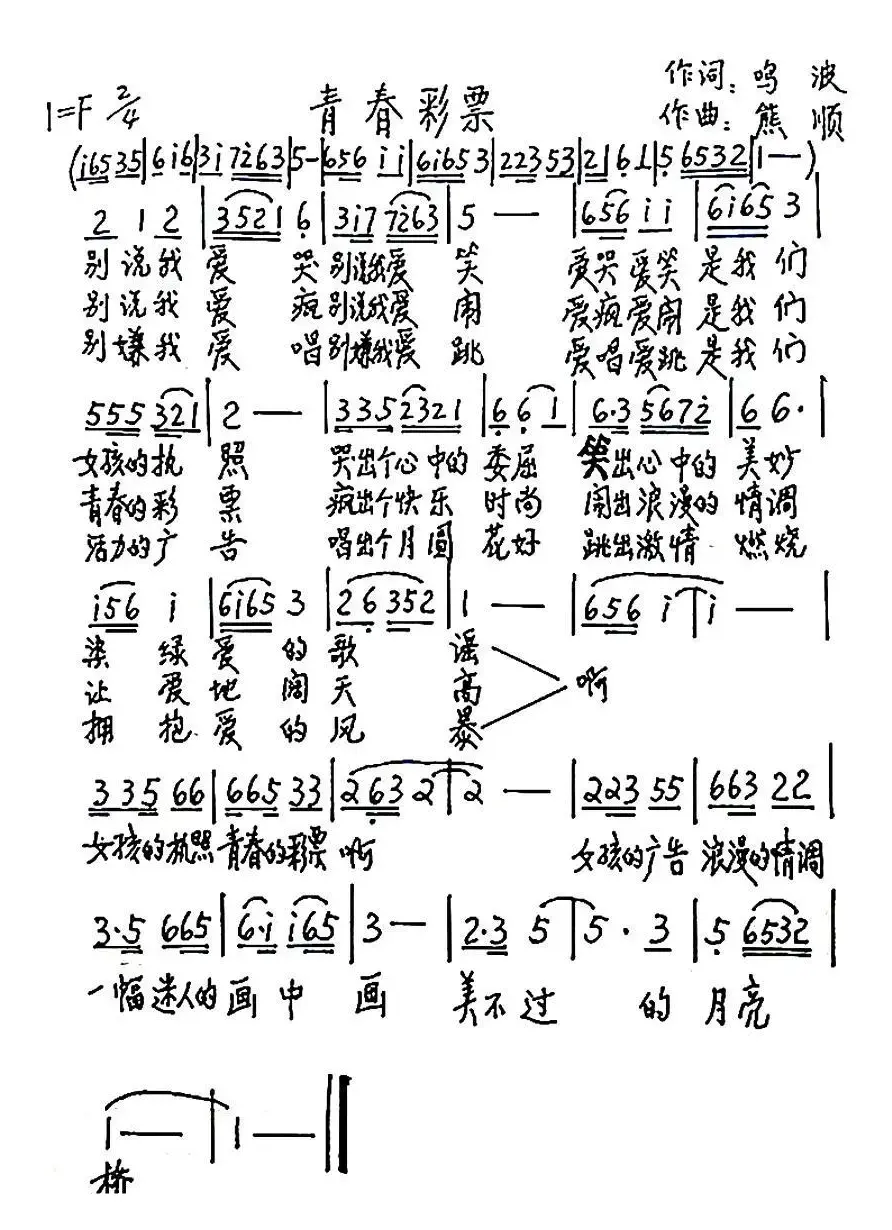 作词：鸣 波
1=F 2/4 青春彩票 作曲：熊 顺
(i65 35|6 i6|3i 7i63|5-|656 ii|6i65 3|223 53|21 6 1|5 6532|1—)
2 1 2|3521 6|3i7 7i63|5 —|656 ii|6i65 3|
别说我 爱 哭 别说我爱 笑 爱哭爱笑 是我们
别说我 爱 疯 别说我爱 闹 爱疯爱闹 是我们
别嫌我 爱 唱 别嫌我爱 跳 爱唱爱跳 是我们
555 321|2 —|335 2321|6 6 1|6·3 567i|6 6·|
女孩的执 照 哭出个心中的 委屈 笑出心中的 美妙
青春的彩 票 疯出个快乐 时尚 闹出浪漫的 情调
活力的广 告 唱出个月圆 花好 跳出激情 燃烧
i56 i|6i65 3|26 352|1 —|656 i|i —|
染 绿 爱 的 歌 谣
让 爱 地 阔 天 高 啊
拥 抱 爱 的 风 暴
335 66|665 33|263 2|2 —|223 55|663 22|
女孩的执照 青春的彩票 啊 女孩的广告 浪漫的情调
3·5 665|6·i i65|3 —|2·3 5|5· 3|5 6532|
一幅迷人的 画 中 画 美不过 的 月亮
1 —|1 —‖
桥